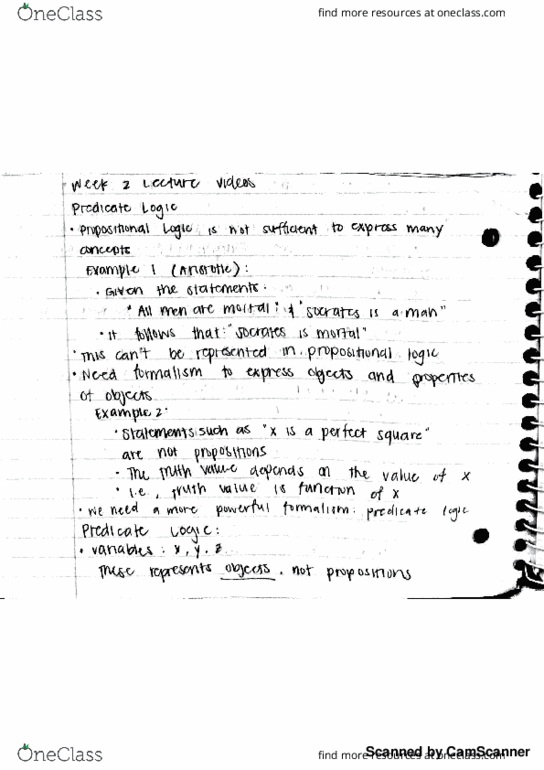 OneClass
find more resources at oneclass.com
Week 2 Lecture videos
Predicate Logic
• Propositional Logic is not sufficient to express many
concepts
Example 1 (Aristotle):
• Given the statements:
• "All men are mortal" & "socrates is a man"
• it follows that: "socrates is mortal"
• This can't be represented in propositional logic
• Need formalism to express objects and properties
of objects
Example 2:
• Statements such as "x is a perfect square"
are not propositions
• The truth value depends on the value of x
• i.e., truth value is function of x
• We need a more powerful formalism: predicate logic
Predicate Logic:
• variables: x, y, z
These represents objects, not propositions
OneClass
find more resources at oneclass.com
Scanned by CamScanner